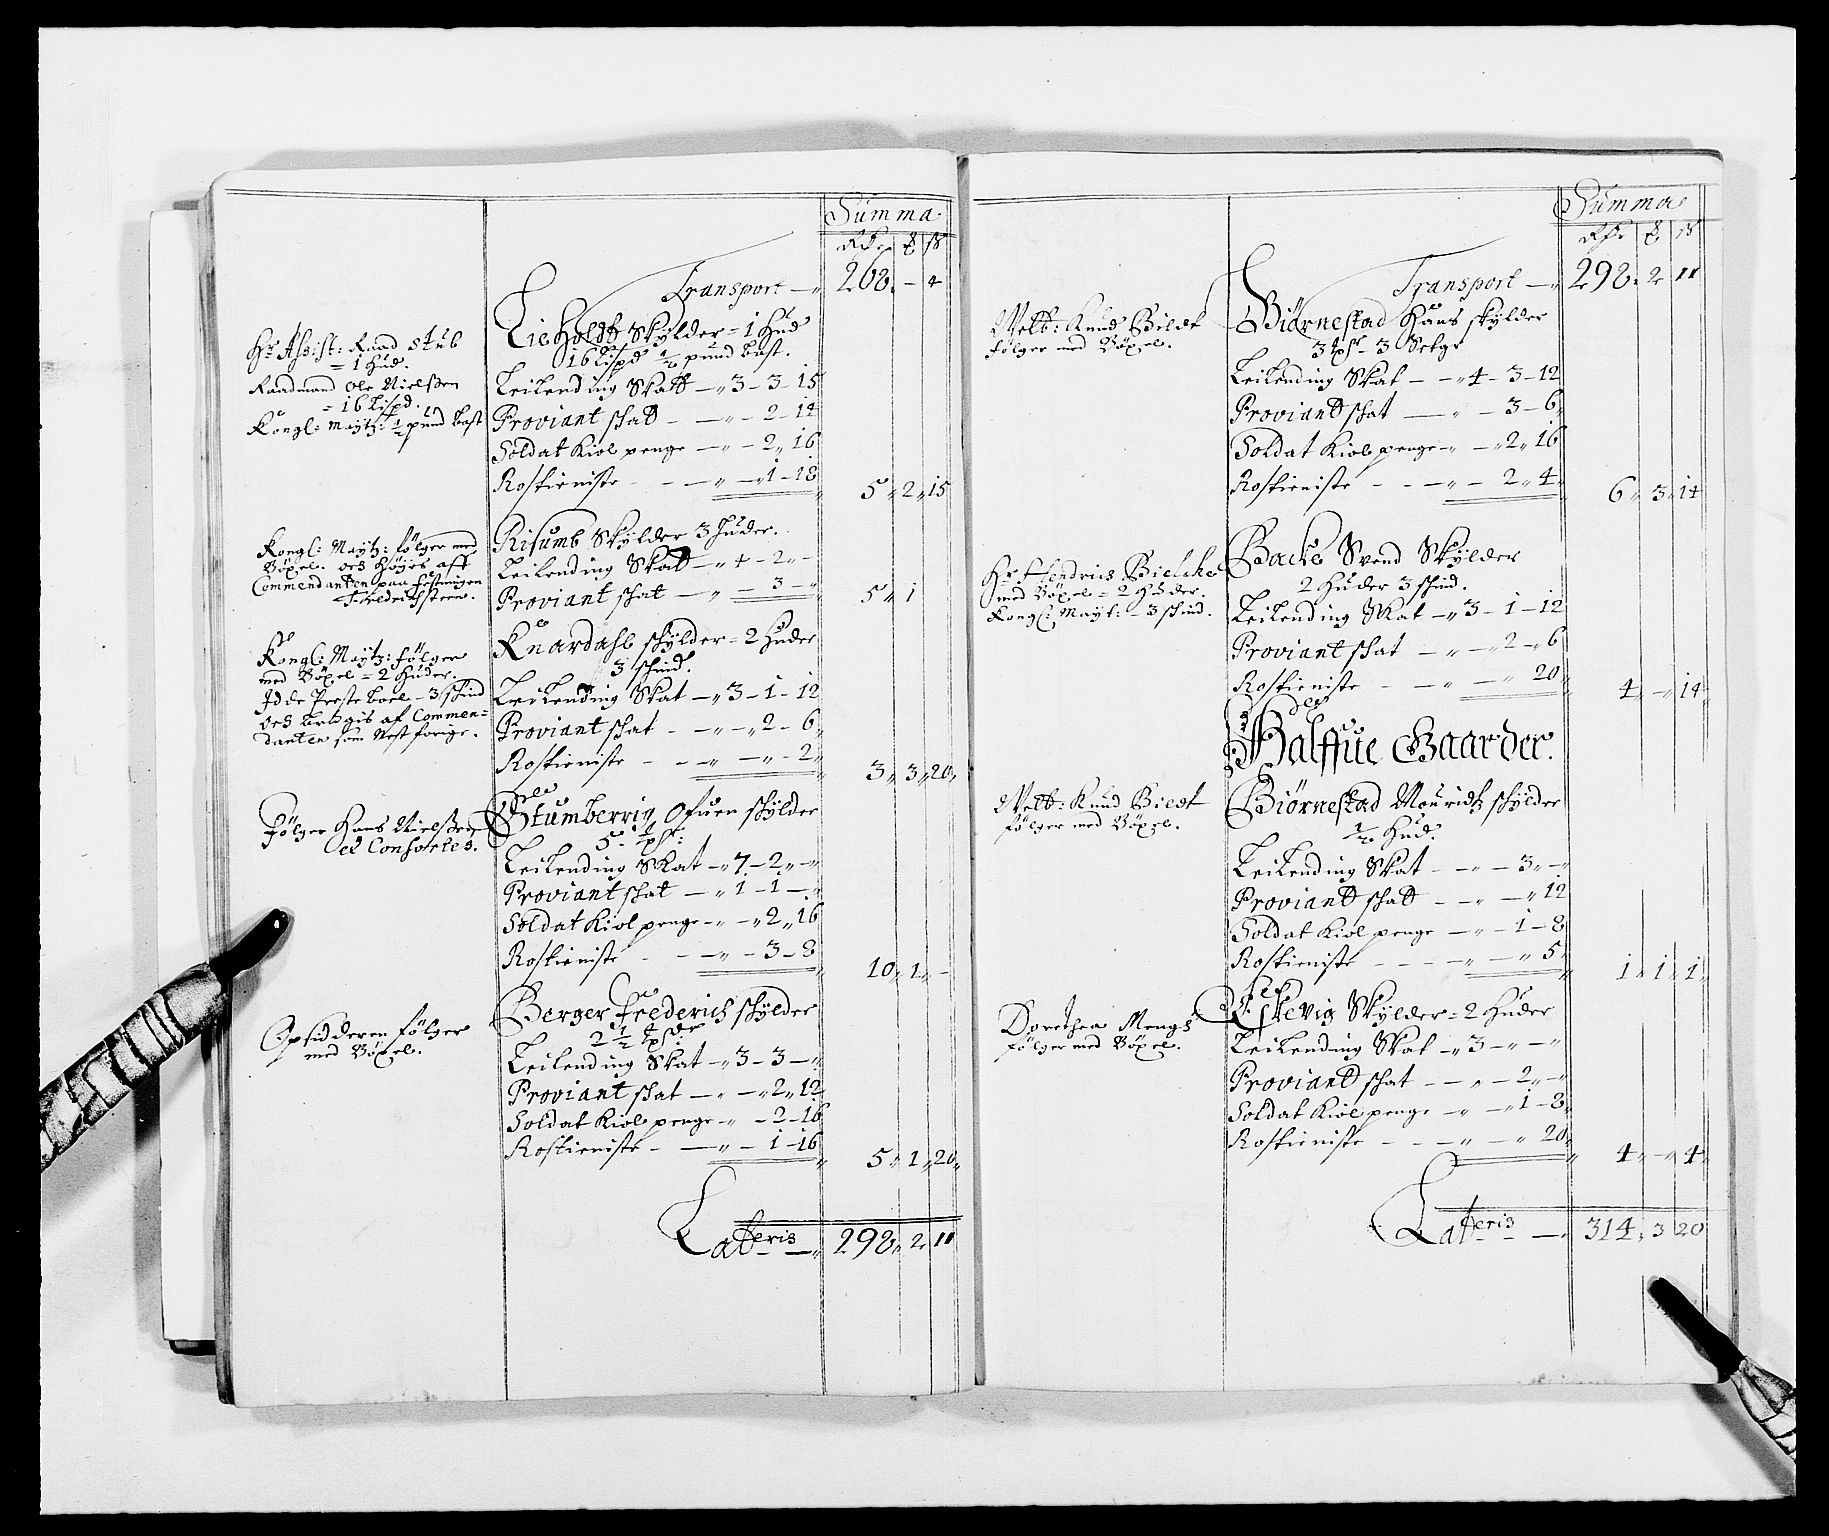 Summa
Rdr ₰ ß
Transport — 268 - 4
Hr Assist: Raad Stub
= 1 Hud.
Raadmand Ole Nielßen
= 16 Lispd.
Kongl: Maytz: ½ pund Last
Lieholdt Skylder = 1 Hud
16 Lispd ½ pund Last.
Leilending Skatt — 3 - 3 - 15
Proviant skatt — - 2 - 14
Soldat Kiol penge — - 2 - 16
Rostieniste - - - 1 - 18
5 2 15
Kongl: Maytz: følger med
Bøxel. och
Commendanten paa Festningen
Fredrichsteen.
Risumb Skylder 3 Huder.
Leilending Skatt — 4 - 2 - -
Proviant skat — - 3 -
5 1
Kongl: Maytz: følger
med Bøxel = 2 Huder.
Idde Preste boel - 3 skind
och af Commen=
danten som Nest forige.
Knardahl skylder = 2 Huder
3 skind.
Leilending Skat — 3 - 1 - 12
Proviant skat - — 2 - 6
Rostieniste - - — - 2
3 3 20
Følger Hans Nielßen
ed Consortes.
Stumberrig Ofuen skylder
5 ½
Leilending Skat — 7 - 2 - -
Proviant skat — 1 - 1 —
Soldat Kiol penge - - 2 - 16
Rostieniste - - - 3 - 8
10 1 -
Opsidderen følger
med Bøxel.
Berger Frederich skylder
2 ½
Leilending Skat — 3 - 3 —
Proviant skat — - 2 - 12
Soldat Kiol penge - - 2 - 16
Rostieniste - — - 1 - 16
5 1 20
Lateris — 298 2 11
Summa
Rdr ₰ ß
Transport — 298 2 11
Velb: Knud Bildt
følger med Bøxel.
Biørnestad Hans skylder
3 - 3 Setgr
Leilending Skat — 4 - 3 - 12
Proviant skat — - 3 - 6
Soldat Kiol penge - - 2 - 16
Rostieniste - - - 2 - 4
6 3 14
Hr Hendrics Bielche
med Bøxel = 2 Huder.
Kongl: Mayt: - 3 skind.
Backe Svend Skylder
2 Huder 3 skind.
Leilending Skat — 3 - 1 - 12
Proviant skat - - 2 - 6
Rostieniste - - - 20
4 - 14
Halffue Gaarder.
Velb: Knud Bildt
følger med Bøxel.
Biørnestad Mouridtz skylder
½ Hud.
Leilending Skat - - 3 - -
Proviant skatt - - — 12
Soldat Kiol penge — - 1 - 8
Rostieniste - - - - 5
1 1 1
Dorethea Mengs
følger med Bøxel.
Eskevig Skylder = 2 Huder
Leilending Skat — 3 - - -
Proviant skat — - 2 - -
Soldat Kiol penge - - 1 - 8
Rostieniste - - - - 20
4 - 4
Lateris — 314 3 20